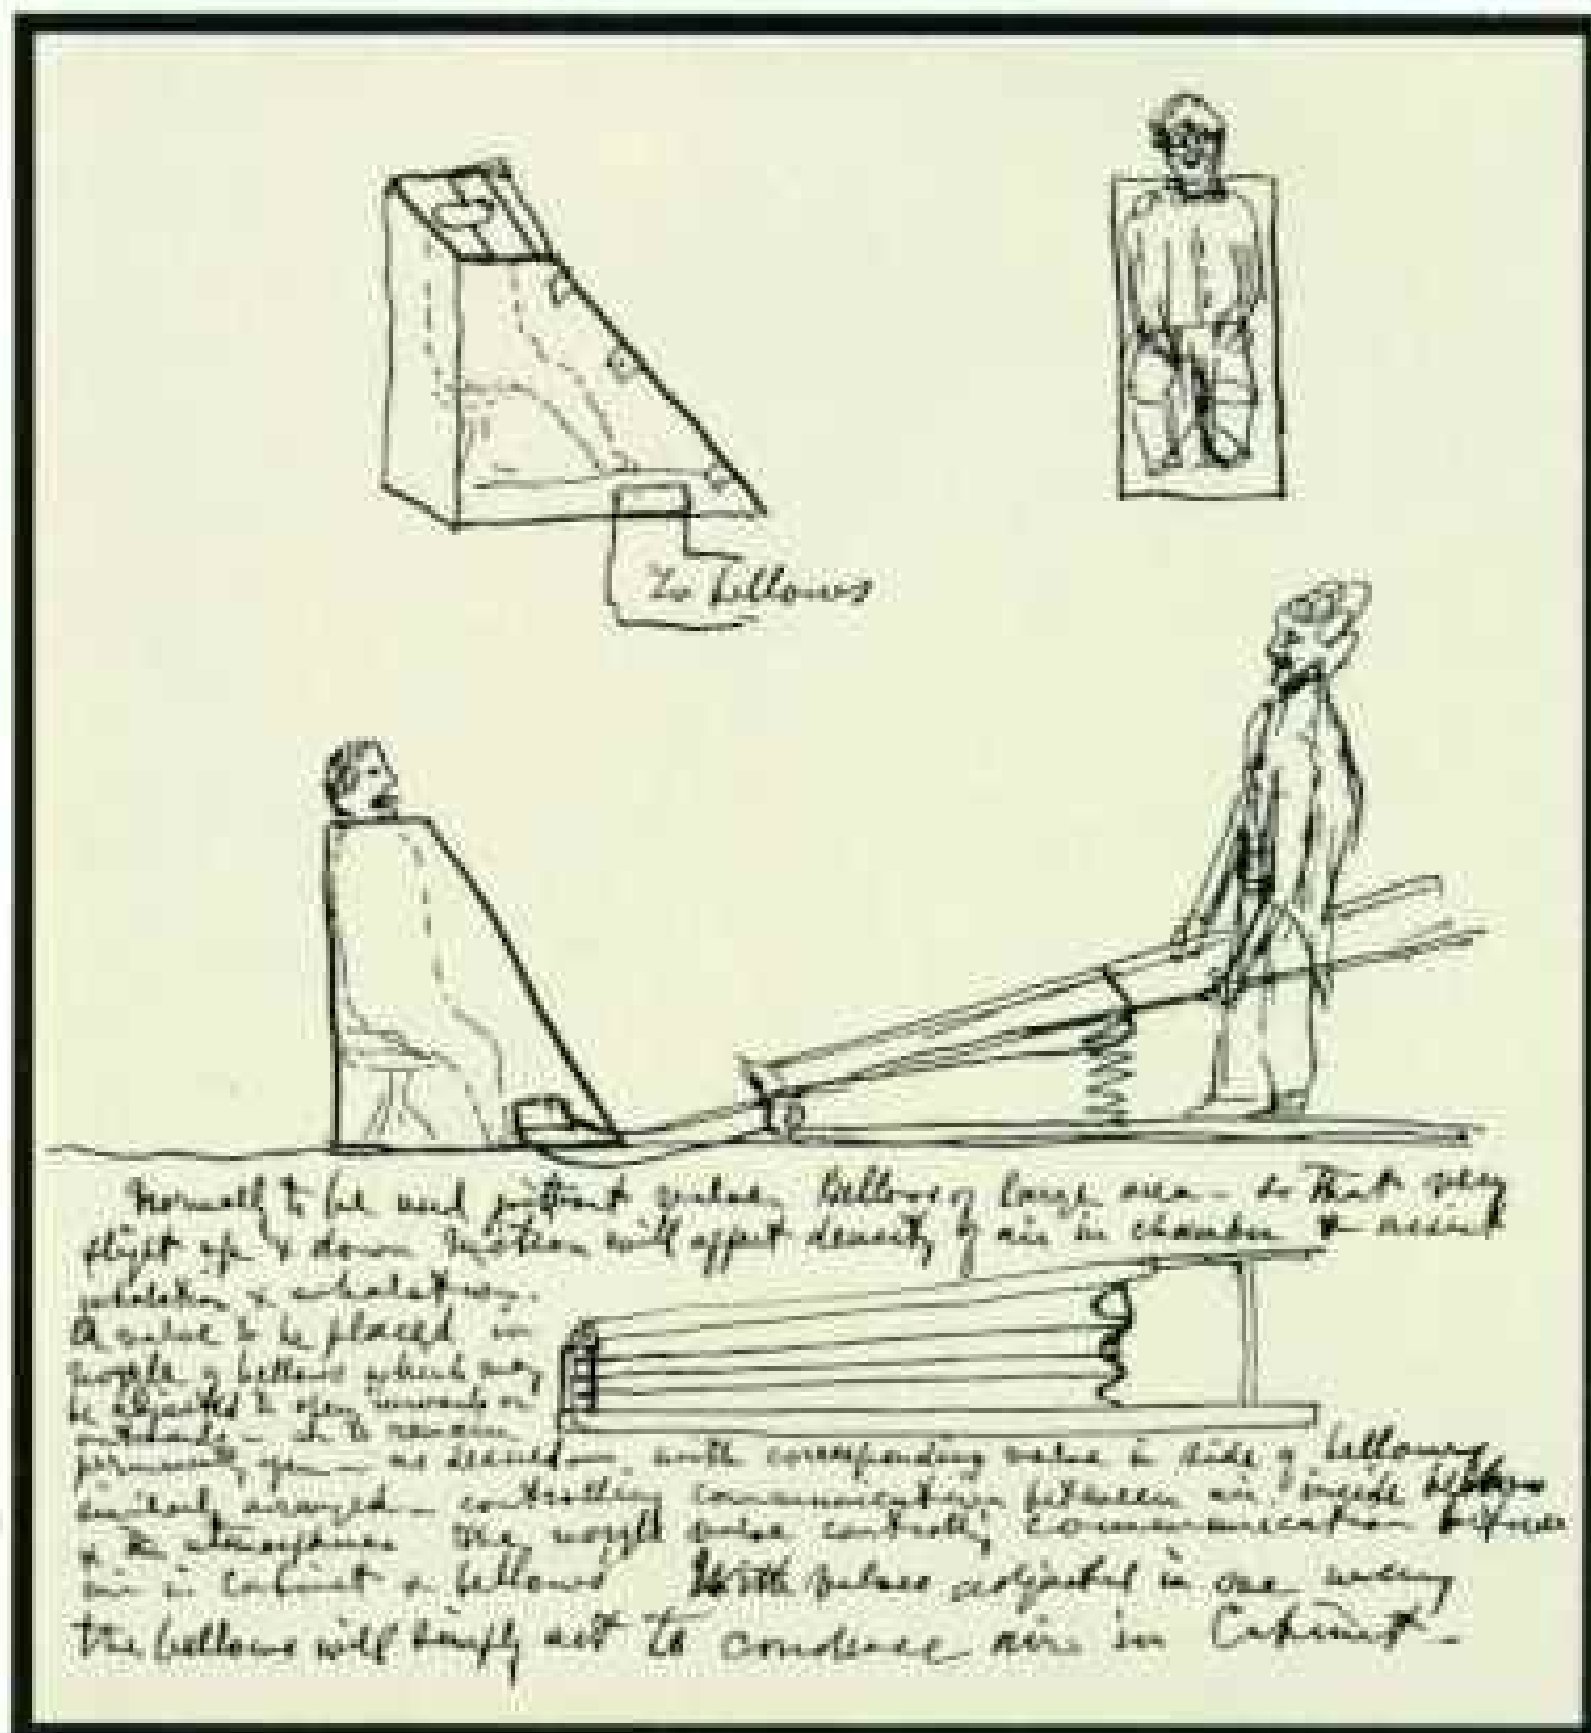 To bellows
Normally to be used without valve. Bellows of large area – so that very
slight up & down motion will affect density of air in chamber & assist
inhalation & exhalation.
A valve to be placed in
nozzle of bellows which may
be adjusted to open inwards or
outwards – or to remain
permanently open – as desired – with corresponding valve in side of bellows
similarly arranged – controlling communication between air inside bellows
& the atmosphere the nozzle valve controlling communication between
air in cabinet & bellows With valves adjusted in one way
the bellows will simply act to condense air in Cabinet –